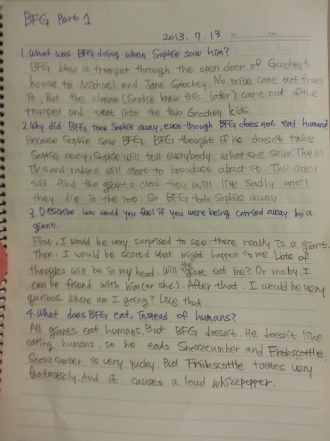 BFG Part 1
2013. 7. 13
1. What was BFG doing when Sophie saw him?
BFG blew a trumpet through the open door of Goochey's
house to Michael and Jane Goochey. No noise came out from
it, But the dream (Sophie knew this later) came out of the
trumpet and went into the two Goochey kids.
2. Why did BFG took Sophie away, even though BFG does not eat humans?
Because Sophie saw BFG, BFG thought if he doesn't take
Sophie away, Sophie will tell everybody what she saw. Then
TV and radios will start to broadcast about it. The army
will find the giants and they will live sadly until
they die in the zoo. So BFG took Sophie away.
3. Describe how would you feel if you were being carried away by a
giant.
First, I would be very surprised to see there really is a giant.
Then, I would be scared what might happen to me. Lots of
thoughts will be in my head. Will the giant eat me? Or maby I
can be friend with him (or she). After that, I would be very
qurious. Where am I going? Like that.
4. What does BFG eat, instead of humans?
All giants eat humans. But BFG doesn't. He doesn't like
eating humans, so he eats Snozzcumber and Frobscottle.
Snozzcumber is very yucky. But Frobscottle tastes very
fantasticly. And it causes a loud whizzpopper.